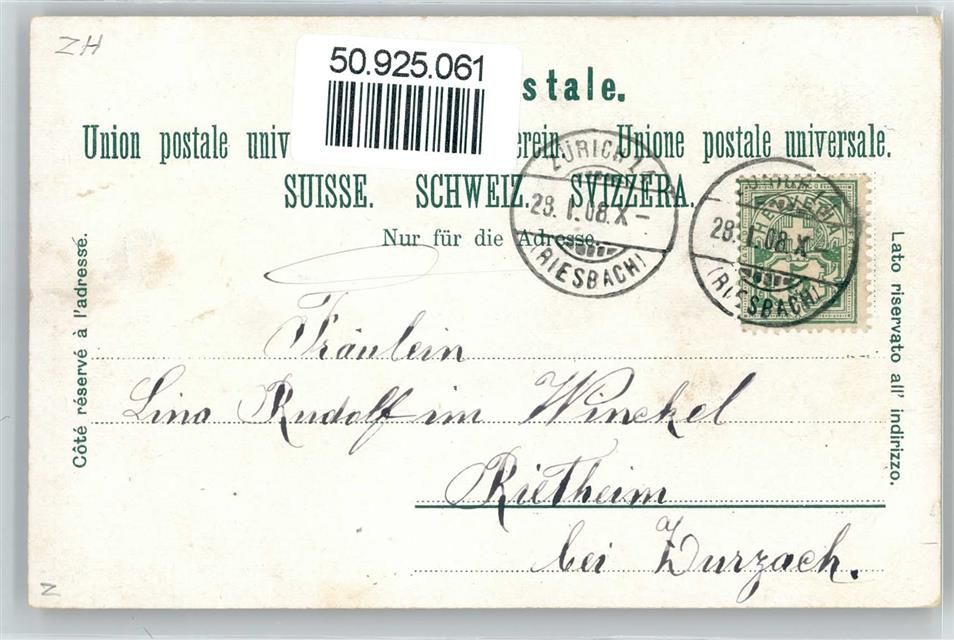 ZH
50.925.061
stale.
Union postale univ erein Unione postale universale.
SUISSE. SCHWEIZ. SVIZZERA.
Nur für die Adresse.
ZÜRICH
28.I.08.X-
(RIESBACH)
HELVETIA
28.I.08.X
(RIESBACH)
Côté réservé à l'adresse.
Lato riservato all' indirizzo.
Fräulein
Lina Rudolf im Winckel
Rietheim
bei Zurzach.
N